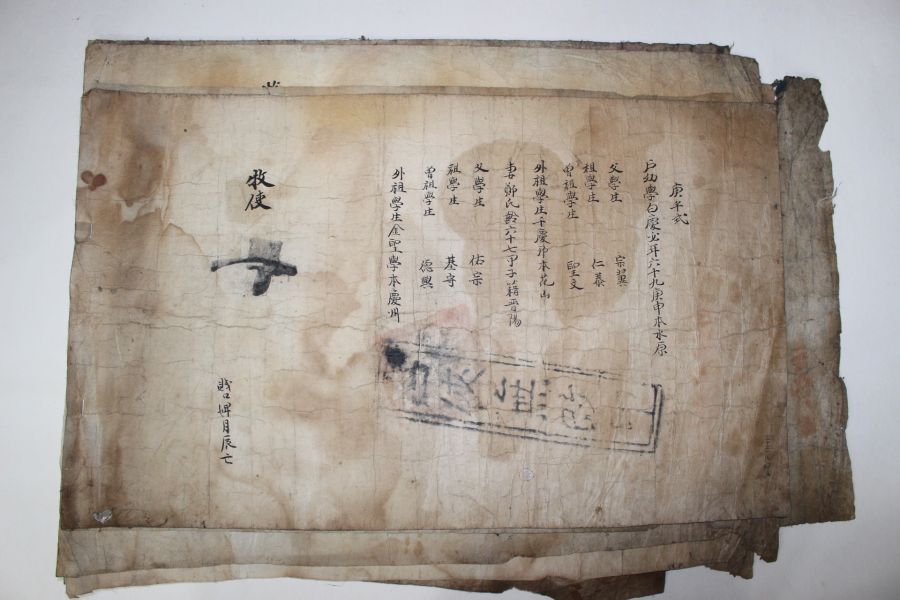 庚午式
戶幼學白慶 年六十九庚申本水原
父學生 宗翼
祖學生 仁泰
曾祖學生 聖文
外祖學生千慶 本花山
妻鄭氏齡六十七甲子籍晋陽
父學生 佑宗
祖學生 基守
曾祖學生 德興
外祖學生金聖學本慶州
牧使
賤口婢月辰亡